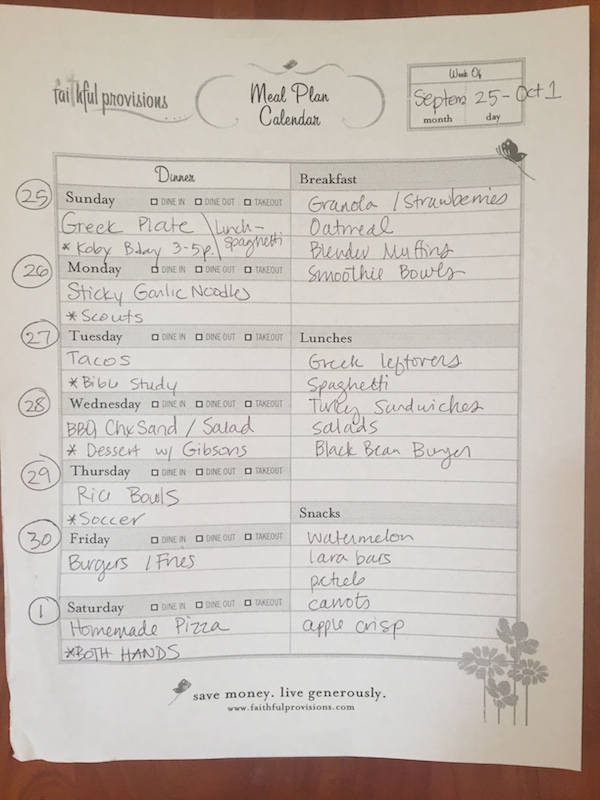 faithful provisions
Meal Plan
Calendar
Week Of
Septem 25 - Oct 1
month day
Dinner
25 Sunday DINE IN DINE OUT TAKEOUT
Greek Plate \ Lunch - Spaghetti
* Koby Bday 3-5p.
26 Monday DINE IN DINE OUT TAKEOUT
Sticky Garlic Noodles
* Scouts
27 Tuesday DINE IN DINE OUT TAKEOUT
Tacos
* Bible Study
28 Wednesday DINE IN DINE OUT TAKEOUT
BBQ Chx Sand / Salad
* Dessert w/ Gibsons
29 Thursday DINE IN DINE OUT TAKEOUT
Rice Bowls
* Soccer
30 Friday DINE IN DINE OUT TAKEOUT
Burgers / Fries
1 Saturday DINE IN DINE OUT TAKEOUT
Homemade Pizza
*BOTH HANDS
Breakfast
Granola / Strawberries
Oatmeal
Blender Muffins
Smoothie Bowls
Lunches
Greek leftovers
Spaghetti
Turkey Sandwiches
Salads
Black Bean Burger
Snacks
watermelon
lara bars
carrots
apple crisp
save money. live generously.
www.faithfulprovisions.com